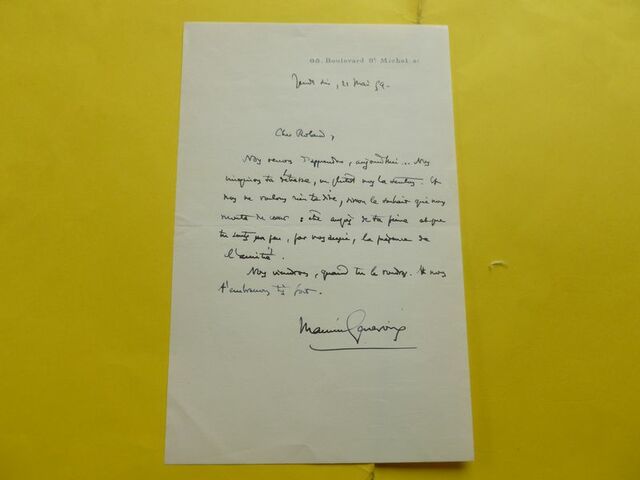 Boulevard St Michel
Jeudi soir, 21 Mai 59.
Cher Roland,
Nous venons d'apprendre, aujourd'hui... Nous
imaginons ta détresse, ou plutôt nous la sentons. Et
nous ne voulons rien te dire, sinon le souhait que nous
monte du cœur : être auprès de ta peine et que
tu sentes un peu, par nous, la présence de
l'amitié.
Nous viendrons, quand tu le voudras. Et nous
t'embrassons très fort.